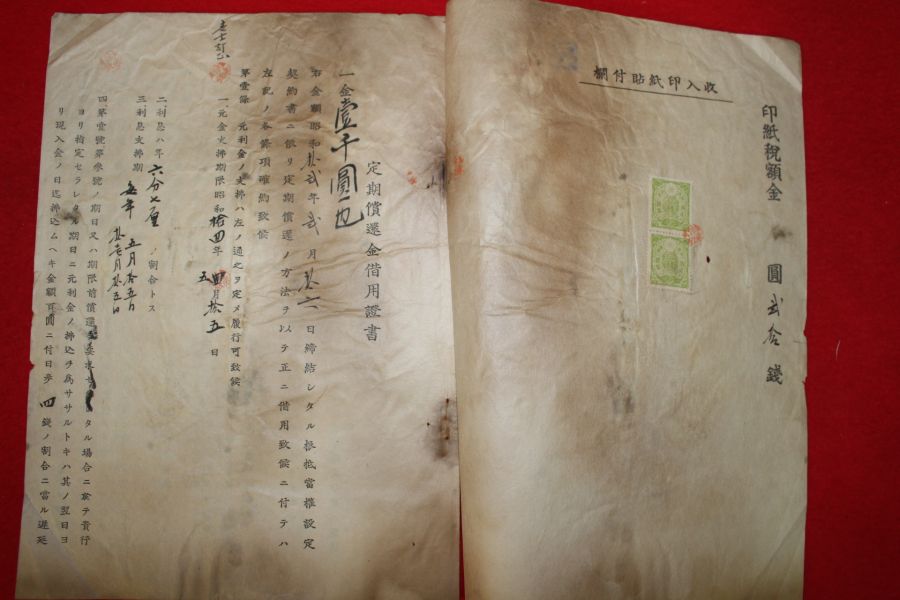 收入印紙貼付欄
印紙税額金 圓 貳拾 錢
定期償還金借用證書
一金壹千圓也
右金額昭和 年貳月 日締結シタル根抵當權設定
契約書ニ依リ定期償還ノ方法ヲ以テ正ニ借用致候ニ付テハ
左記ノ各條項確約致候
第壹條 元利金ノ支拂ハ左ノ通之ヲ定メ履行可致候
一、元金支拂期限昭和拾四年 月拾五日
二、利息ハ年六分七厘ノ割合トス
三、利息支拂期 每年 五月拾五日
拾壱月拾五日
四、第壹號第參號ノ期日又ハ期限前償還 要求 タル場合ニ於テ貴行
ヨリ指定セラレタル期日ニ元利金ノ拂込ヲ爲ササルトキハ其ノ翌日ヨ
リ現入金ノ日迄拂込ムヘキ金額百圓ニ付日步四錢ノ割合ニ當ル遲延